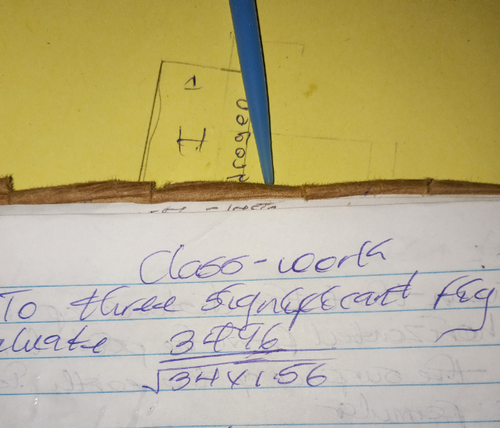 1
H
drogen
Class-work
To three significant fig
aluate 3496
√344x1.56